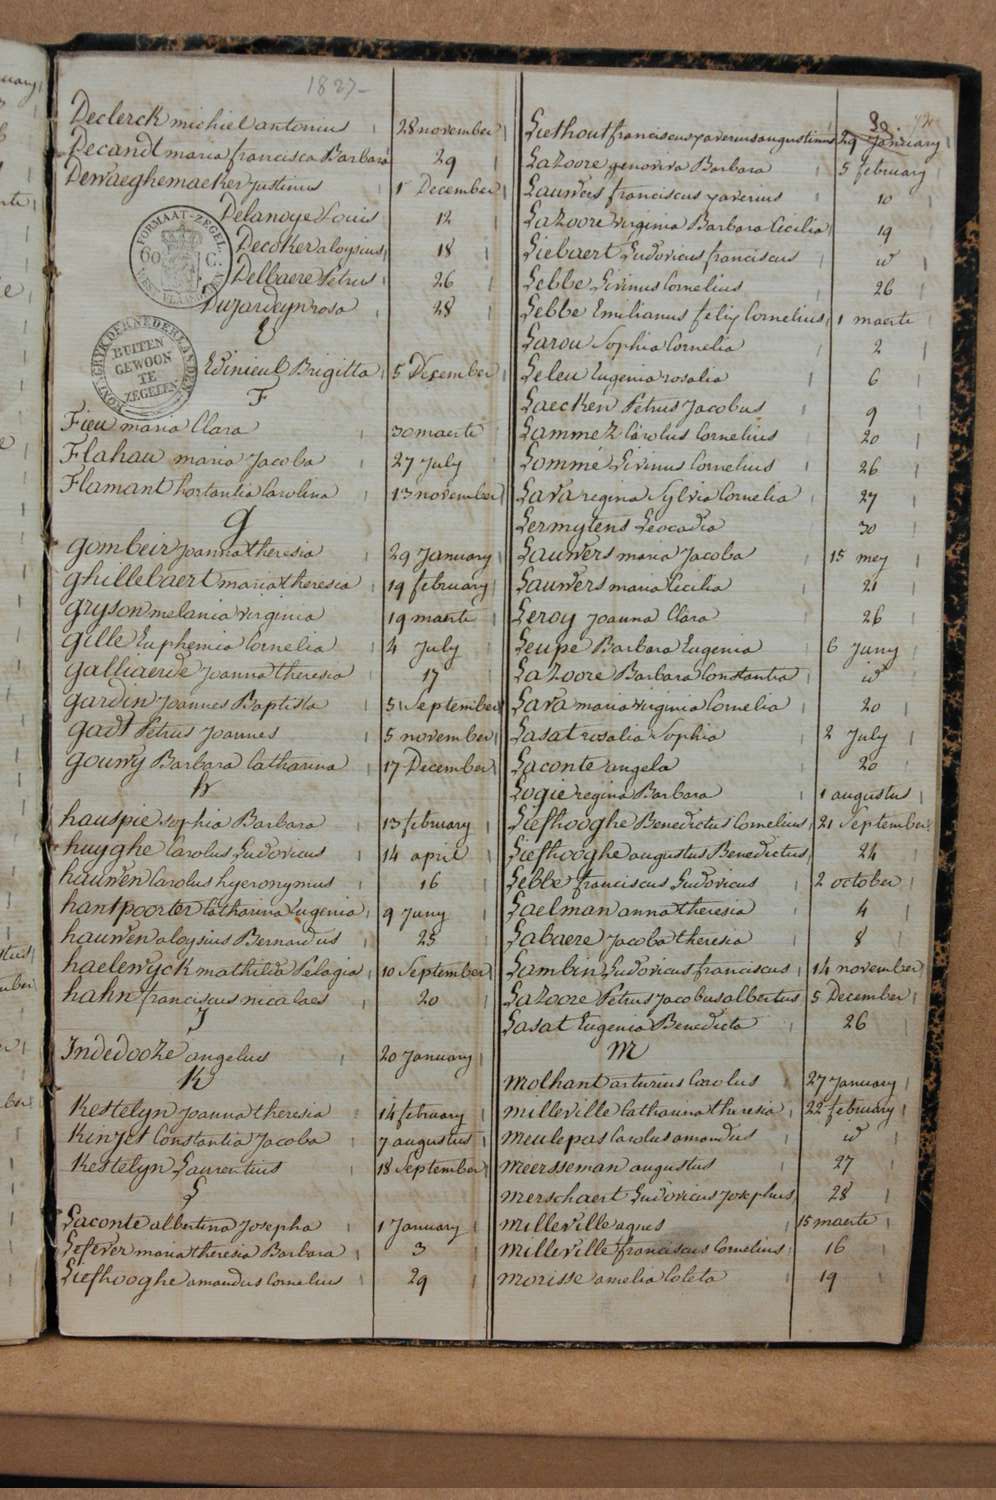 1827-
Declerck michiel antonius 28 november
Decandt maria francisca Barbara 29
Dewaeghemaeker Justinus 1 December
Delanoye Louis 12
Decoker aloysius 18
Delbaere Petrus 26
Dujardeyn rosa 28
FORMAAT-ZEGEL
60 C.
KONINGRYK DER NEDERLANDEN
BUITEN
GEWOON
TE
ZEGELEN
E
Edinieul Brigitta 5 December
F
Fieu maria Clara 30 maerte
Flahau maria Jacoba 27 July
Flamant hortantia Carolina 13 november
G
gombeir Joanna theresia 29 January
ghillebaert maria theresia 19 february
gryson melania virginia 19 maerte
gille Euphemia Cornelia 4 July
galliaerde Joanna theresia 17
gardin Joannes Baptista 5 September
gadt Petrus Joannes 5 november
gouwy Barbara Catharina 17 December
h
hauspie Sophia Barbara 13 february
huyghe Carolus Ludovicus 14 april
hauwen Carolus hyeronymus 16
hantpoorter Catharina Eugenia 9 Juny
hauwen aloysius Bernardus 25
haelewyck mathilda Pelagia 10 September
hahn franciscus nicolaes 20
J
Indedooze angelus 20 January
K
Kestelyn Joanna theresia 14 february
Kinjet Constantia Jacoba 7 augustus
Kestelyn Laurentius 18 September
L
Laconte albertina Josepha 1 January
Lefever maria theresia Barbara 3
Liefhooghe amandus Cornelius 29
Liethout franciscus xaverius augustinus 29 January
Lazoore genoviva Barbara 5 february
Lauwers franciscus xaverius 10
Lazoore virginia Barbara Cecilia 19
Liebaert Ludovicus franciscus id
Lebbe Livinus Cornelius 26
Lebbe Emilianus felix Cornelius 1 maerte
Larou Sophia Cornelia 2
Leleu Eugenia rosalia 6
Laecken Petrus Jacobus 9
Lammez Carolus Cornelius 20
Lommé Livinus Cornelius 26
Lava regina Sylvia Cornelia 27
Lermytens Leocadia 30
Lauwers maria Jacoba 15 mey
Lauwers maria Cecilia 21
Leroy Joanna Clara 26
Leupe Barbara Eugenia 6 Juny
Lazoore Barbara Constantia id
Lava maria virginia Cornelia 20
Lasat rosalia Sophia 2 July
Laconte angela 20
Logie regina Barbara 1 augustus
Liefhooghe Benedictus Cornelius 21 September
Liefhooghe augustus Benedictus 24
Lebbe franciscus Ludovicus 2 october
Laelman anna theresia 4
Labaere Jacoba theresia 8
Lambin Ludovicus franciscus 14 november
Lazoore Petrus Jacobus albertus 5 December
Lasat Eugenia Benedicta 26
M
molhant arturius Carolus 27 January
milleville Catharina theresia 22 february
meulepas Carolus amandus id
meersseman augustus 27
merschaert Ludovicus Josephus 28
milleville agnes 15 maerte
milleville franciscus Cornelius 16
morisse amelia Coleta 19